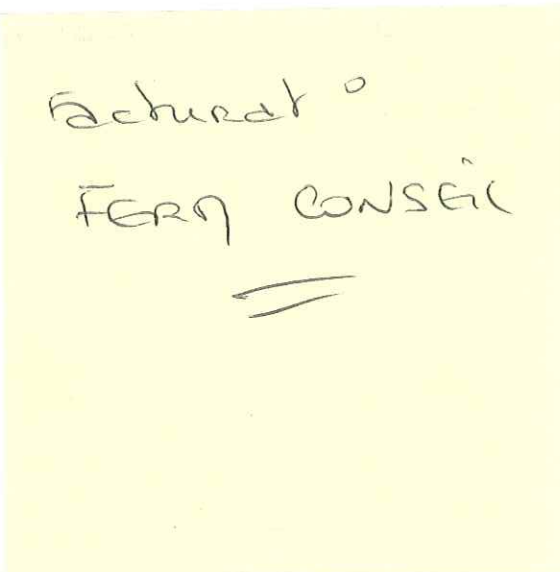 Facturat°
FERM CONSEIL